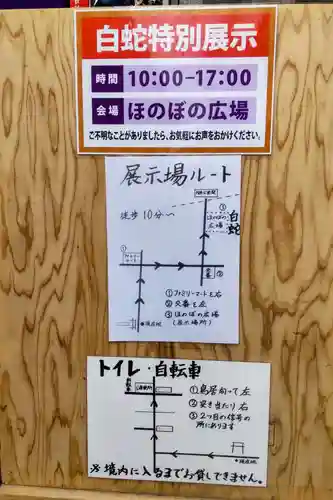 白蛇特別展示
時間 10:00-17:00
会場 ほのぼの広場
ご不明なことがありましたら、お気軽にお声をおかけください。
展示場ルート
徒歩10分〜
③
ほのぼの広場
白蛇
①
②
交番
①ファミリーマートを右
②交番を左
③ほのぼの広場
(展示場所)
●現在地
トイレ・自転車
①鳥居向って左
②突き当たり右
③2つ目の信号の
所にあります
●現在地
※境内に入るまでお貸しできません。